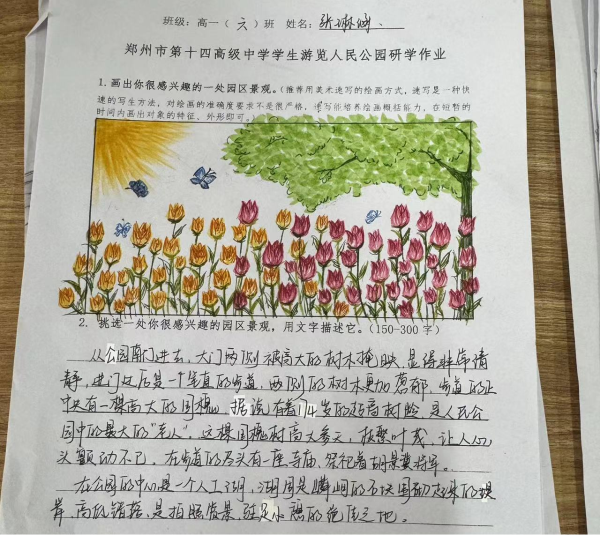 班级：高一（六）班 姓名：张琳
郑州市第十四高级中学学生游览人民公园研学作业
1.画出你很感兴趣的一处园区景观。（推荐用美术速写的绘画方式，速写是一种快
速的写生方法，对绘画的准确度要求不是很严格，速写能培养绘画概括能力，在短暂的
时间内画出对象的特征，外形即可。）
2. 挑选一处你很感兴趣的园区景观，用文字描述它。（150-300 字）
从公园南门进去，大门两侧被高大的树木掩映，显得非常清
静，进门之后是一个笔直的步道，两侧的树木更加葱郁，步道的正
中央有一棵高大的国槐，据说有着174岁的超高树龄，是人民公
园中的最大的“老人”。这棵国槐树高大参天，枝繁叶茂，让人心
头颤动不已，在步道的尽头有一座寺庙，祭祀着胡景翼将军。
在公园的中心是一个人工湖，湖周是嶙峋的石块围砌起来的堤
岸，高低错落，是拍照背景，驻足小憩的绝佳之地。